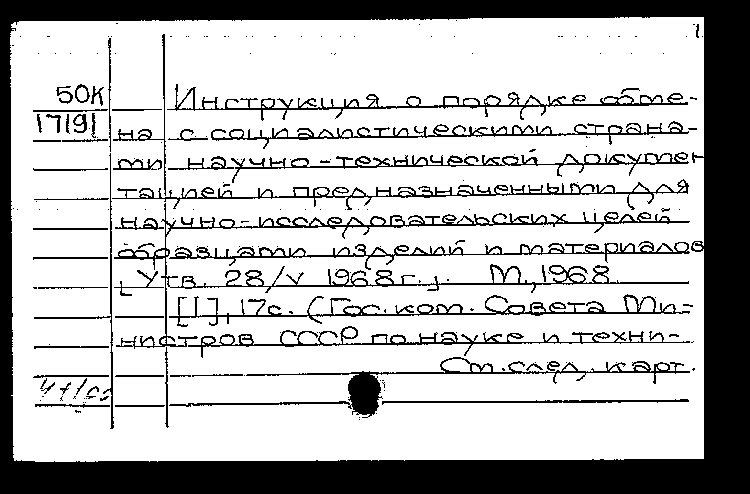 50К
17191
Инструкция о порядке обме-
на с социалистическими страна-
ми научно-технической докумен
тацией и предназначенными для
научно-исследовательских целей
образцами изделий и материалов
[Утв. 28/V 1968г.]. М., 1968
[1], 17с. (Гос. ком. Совета Ми-
нистров СССР по науке и техни-
См. след. карт.